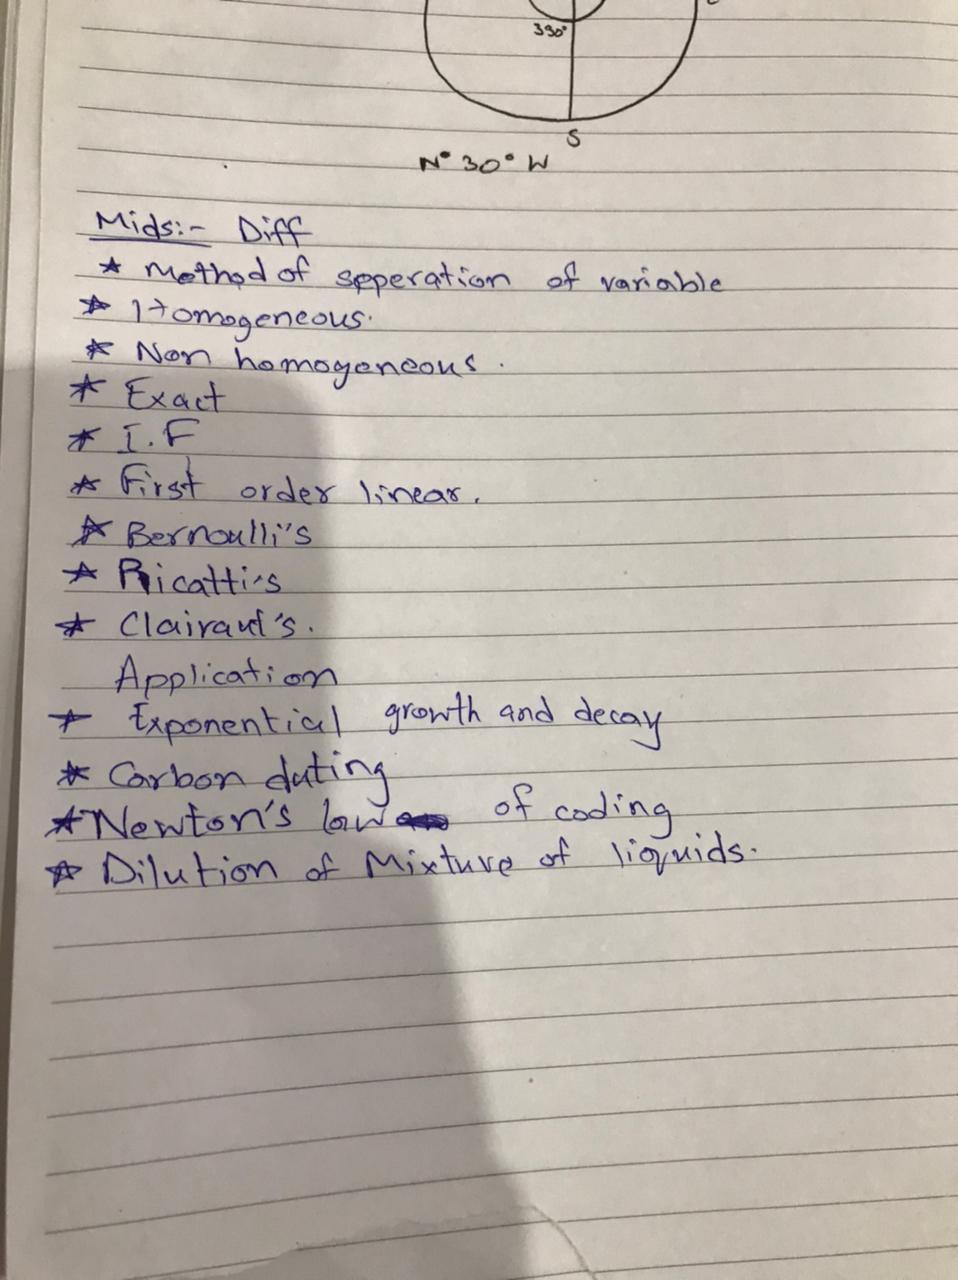 330°
S
N° 30° W
Mids:- Diff
* Method of spperation of variable
* Homogeneous.
* Non homogeneous.
* Exact
* I.F
* First order linear.
* Bernoulli's
* Ricatti's
* Clairaut's.
Application
* Exponential growth and decay
* Carbon dating
* Newton's law of coding
* Dilution of Mixture of liquids.